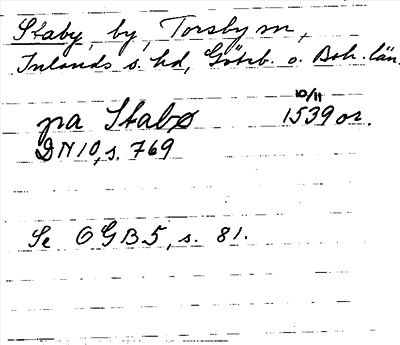 Staby, by, Torsby sn,
Inlands s. hd, Göteb. o. Boh. län.
10/11
pa Stabø 1539 or.
DN 10, s. 769
Se OGB 5, s. 81.